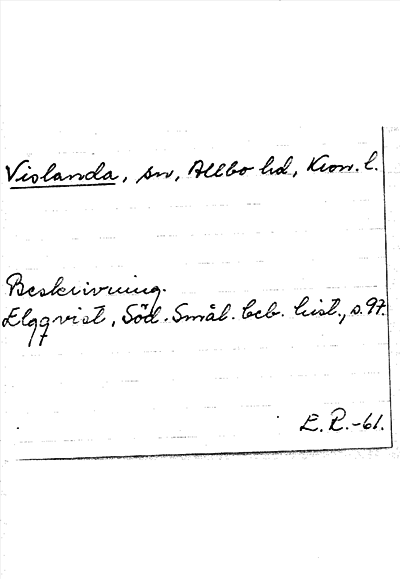 Vislanda, sn, Allbo hd, Kron. l.
Beskrivning.
Elgqvist, Söd. Smål. beb. hist., s. 97.
E. R. -61.